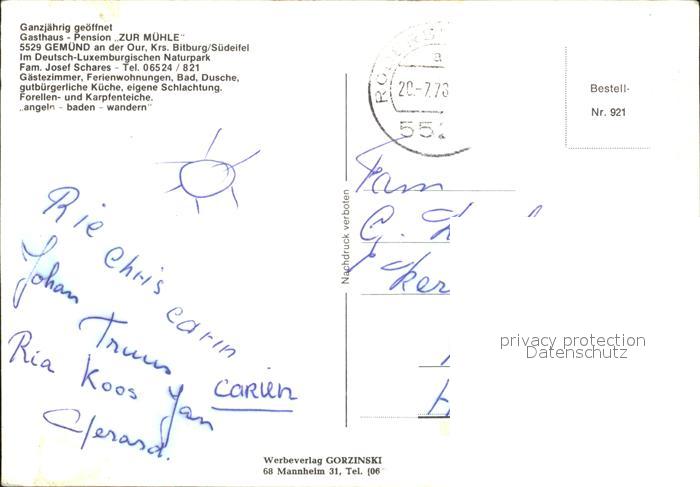 Ganzjährig geöffnet
Gasthaus - Pension „ZUR MÜHLE"
5529 GEMÜND an der Our, Krs. Bitburg/Südeifel
Im Deutsch-Luxemburgischen Naturpark
Fam. Josef Schares - Tel. 06524 / 821
Gästezimmer, Ferienwohnungen, Bad, Dusche,
gutbürgerliche Küche, eigene Schlachtung.
Forellen- und Karpfenteiche.
„angeln - baden - wandern"
Rie Chris Carin
Johan Truus
Ria Koos Jan
CARIEN
Gerard.
Nachdruck verboten
20.-7.78
552
Bestell-
Nr. 921
Fam
G.
privacy protection
Datenschutz
Werbeverlag GORZINSKI
68 Mannheim 31, Tel. (06